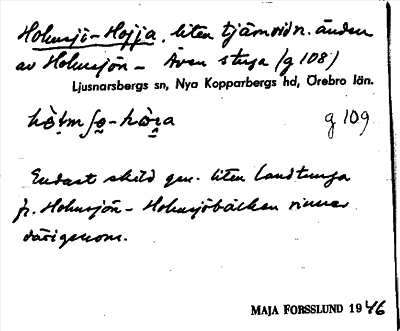 Holmsjö-Hojja, liten tjärn vid n. änden
av Holmsjön - Även stuga (g 108)
Ljusnarsbergs sn, Nya Kopparbergs hd, Örebro län.
g 109
Endast skild gm. liten landtunga
fr. Holmsjön - Holmsjöbäcken rinner
därigenom.
MAJA FORSSLUND 1946